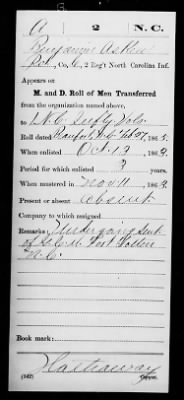 A 2 N.C.
Benjamin Askew
Co. C, 2 Reg't North Carolina Inf.
Appears on
M. and D. Roll of Men Transferred
from the organization named above,
to
Roll dated 186
When enlisted Oct. 13, 186
Period for which enlisted 3 years.
When mustered in Nov 11, 186
Present or absent Absent
Company to which assigned
Remarks Undergoing Sent
of G.C.M. Fort
N.C.
Book mark:
Hathaway
(542) Copyist.